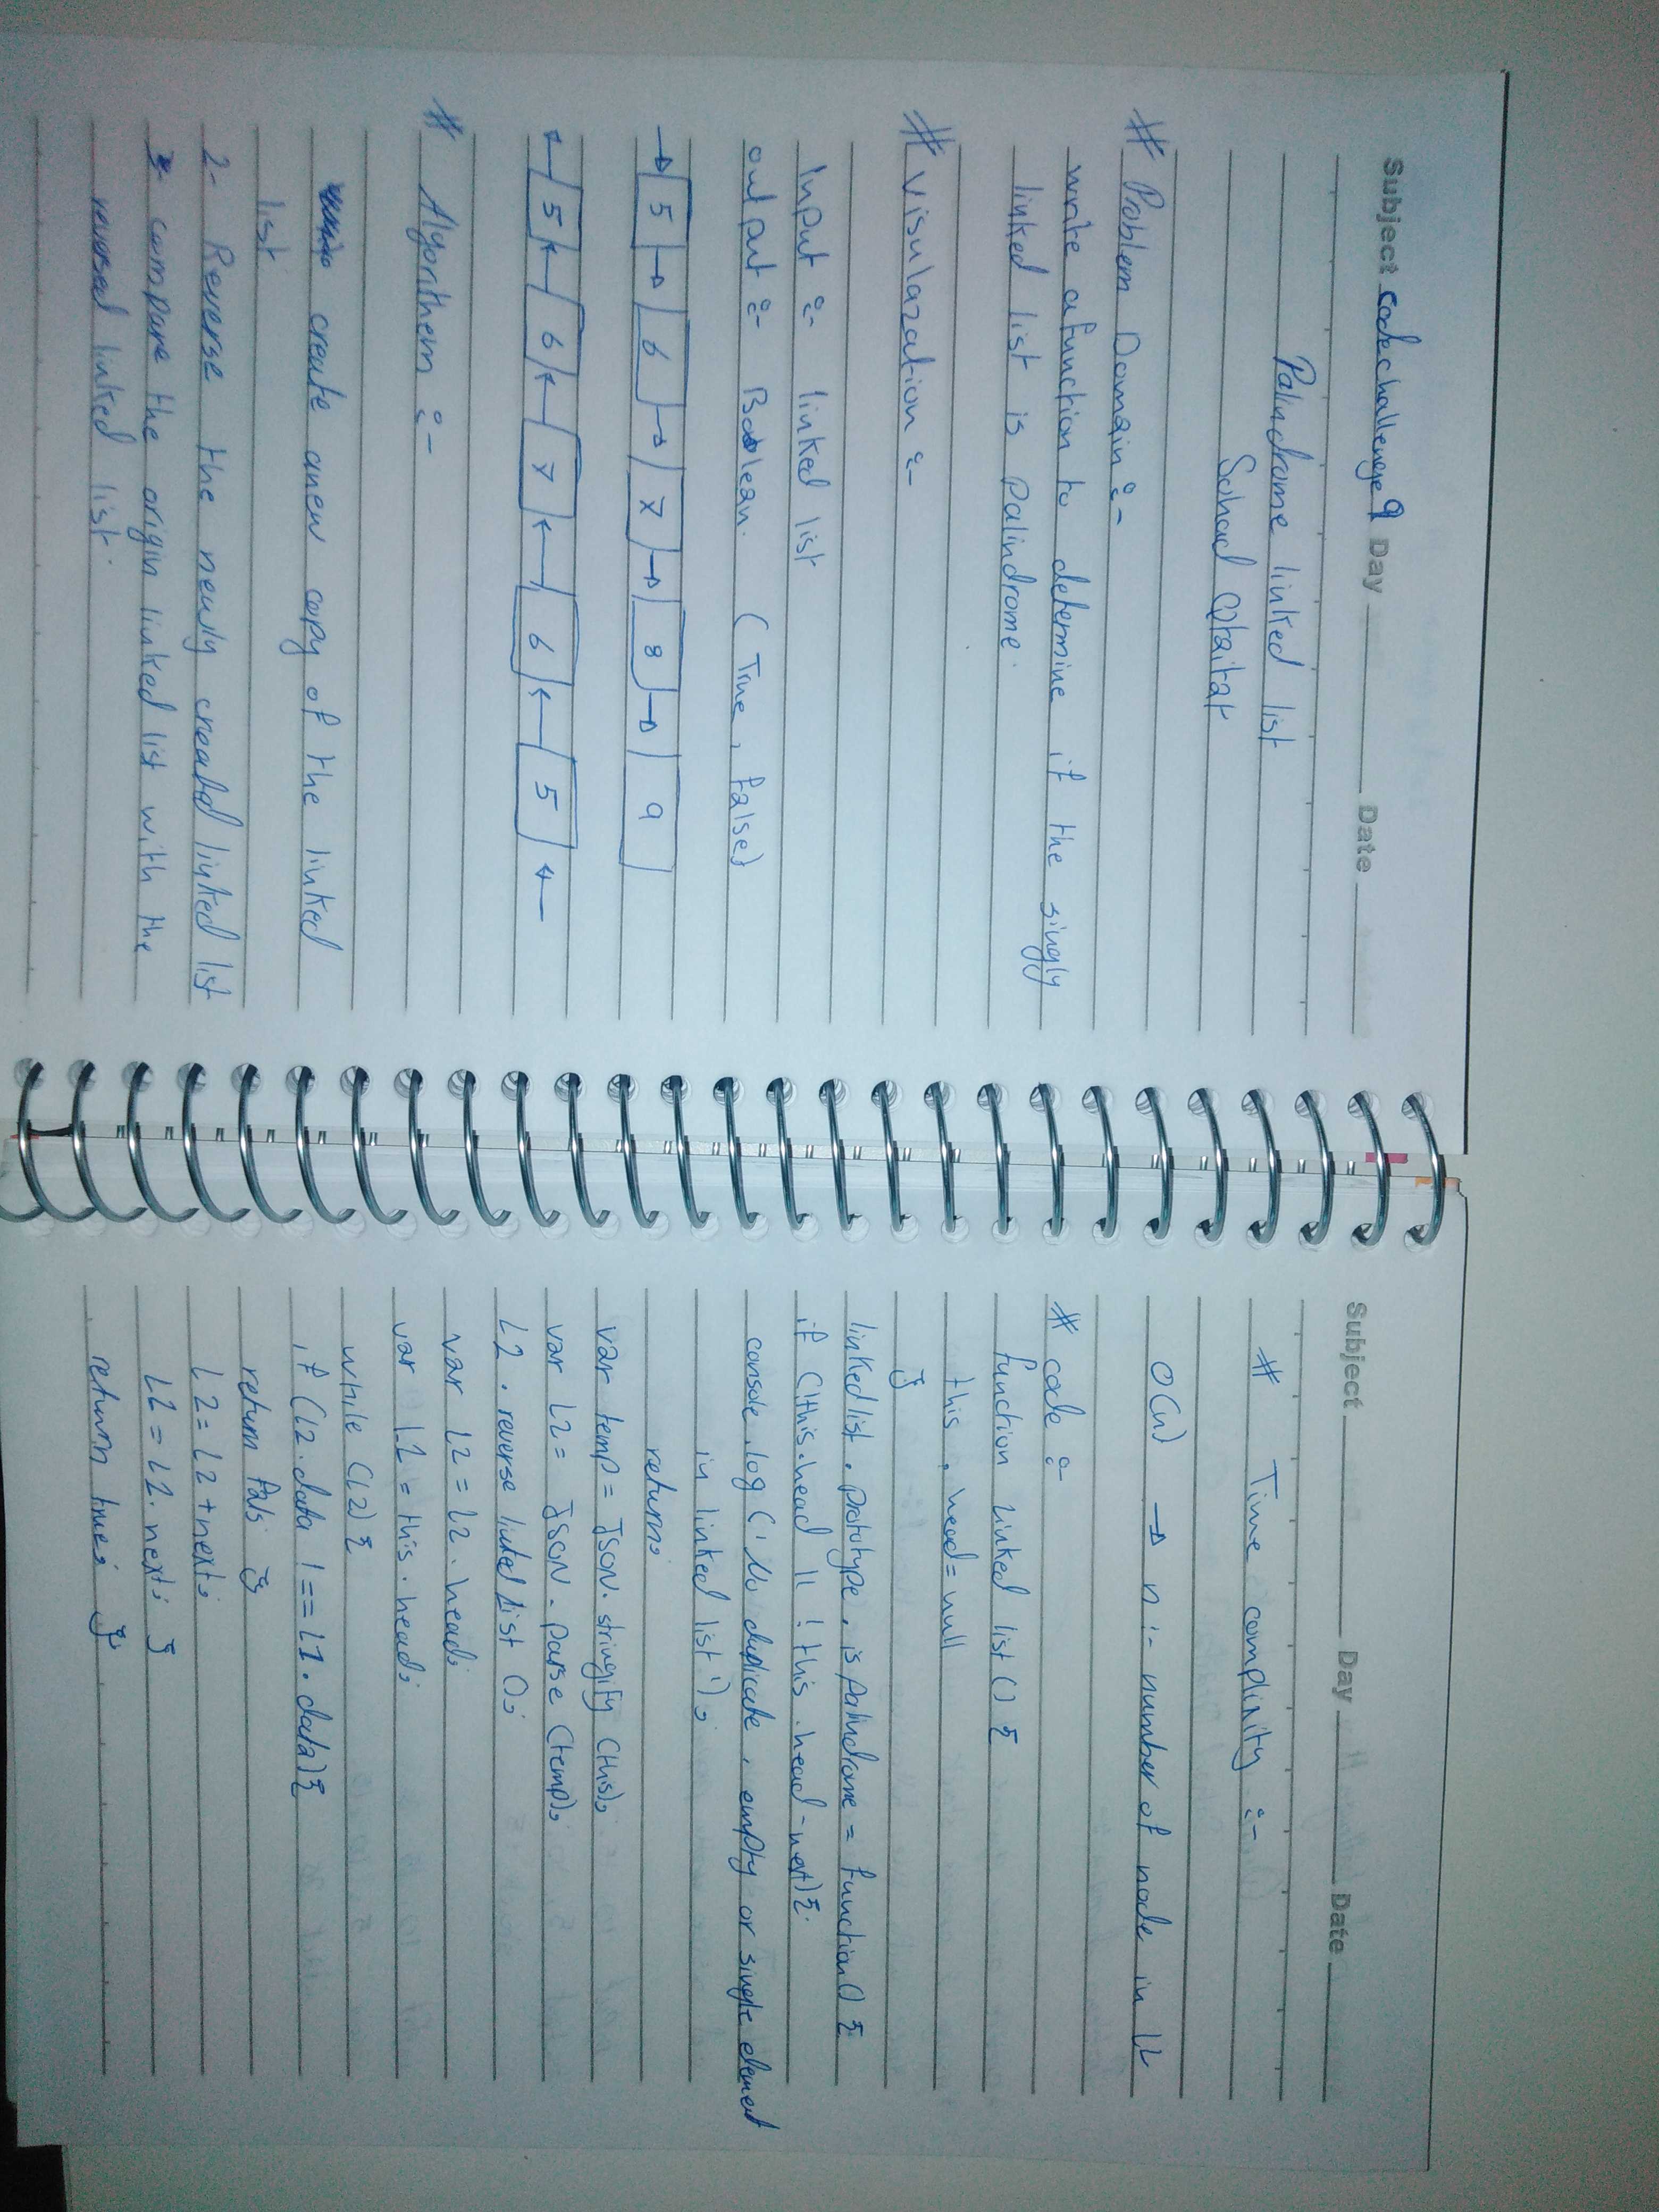 Subject code challenge 9 Day Date
Palindrome linked list
# Problem Domain :-
write a function to determine if the singly
linked list is palindrome.
# visulazation :-
Input :- linked list
output :- Boolean. (True, False)
5 6 7 8 9
5 6 7 6 5
# Algorithem :-
create anew copy of the linked
list
2- Reverse the newly created linked list
3- compare the origin linked list with the
reversed linked list.
Subject Day Date
# Time complixity :-
O(n) → n :- number of node in LL
# code :-
function Linked list () {
this . head = null
}
linked list . prototype . is palindrome = function () {
if (!this.head || ! this . head - next) {
console . log (' No duplicate , empty or single element
in linked list ');
return;
var temp = JSON. stringify (this);
var L2 = JSON . parse (temp);
L2 . reverse linked list ();
var L2 = L2 . head;
var L2 = this . head;
while (L2) {
if (L2.data !== L1. data) {
return fals }
L2 = L2 + next;
L1 = L1. next; }
return true; }